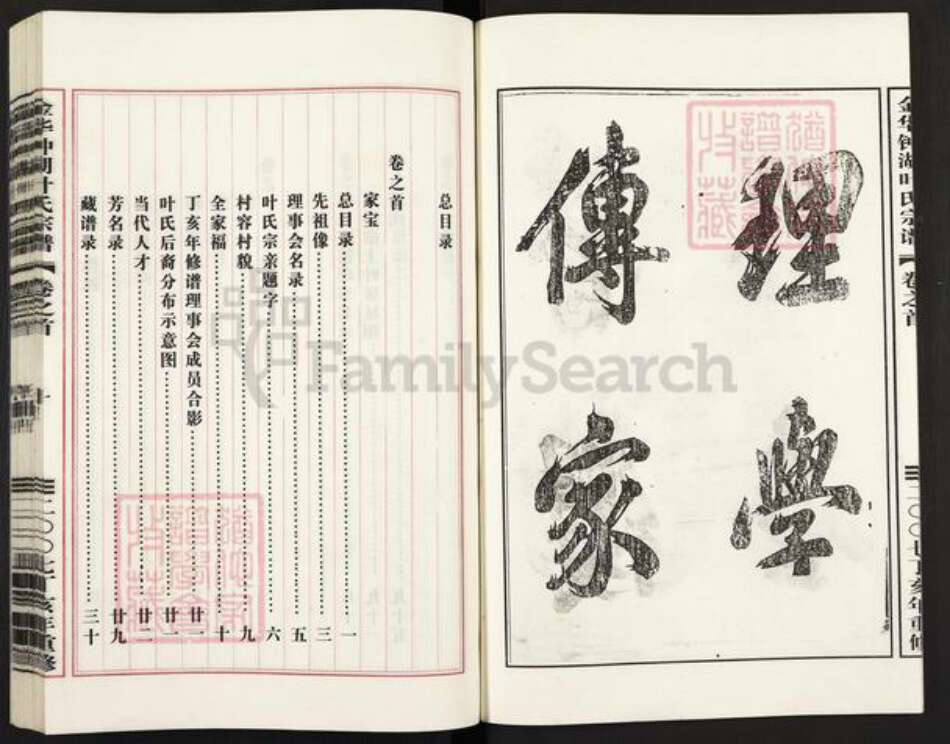 理學
傳家
金华钟湖叶氏宗谱
卷之首
二〇〇七丁亥年重修
总目录
卷之首
家宝
总目录 一
先祖像 三
理事会名录 五
叶氏宗亲题字 六
村容村貌 九
全家福 十
丁亥年修谱理事会成员合影 廿一
叶氏后裔分布示意图 廿一
当代人才 廿二
芳名录 廿九
藏谱录 三十
金华钟湖叶氏宗谱
卷之首
二〇〇七丁亥年重修
FamilySearch